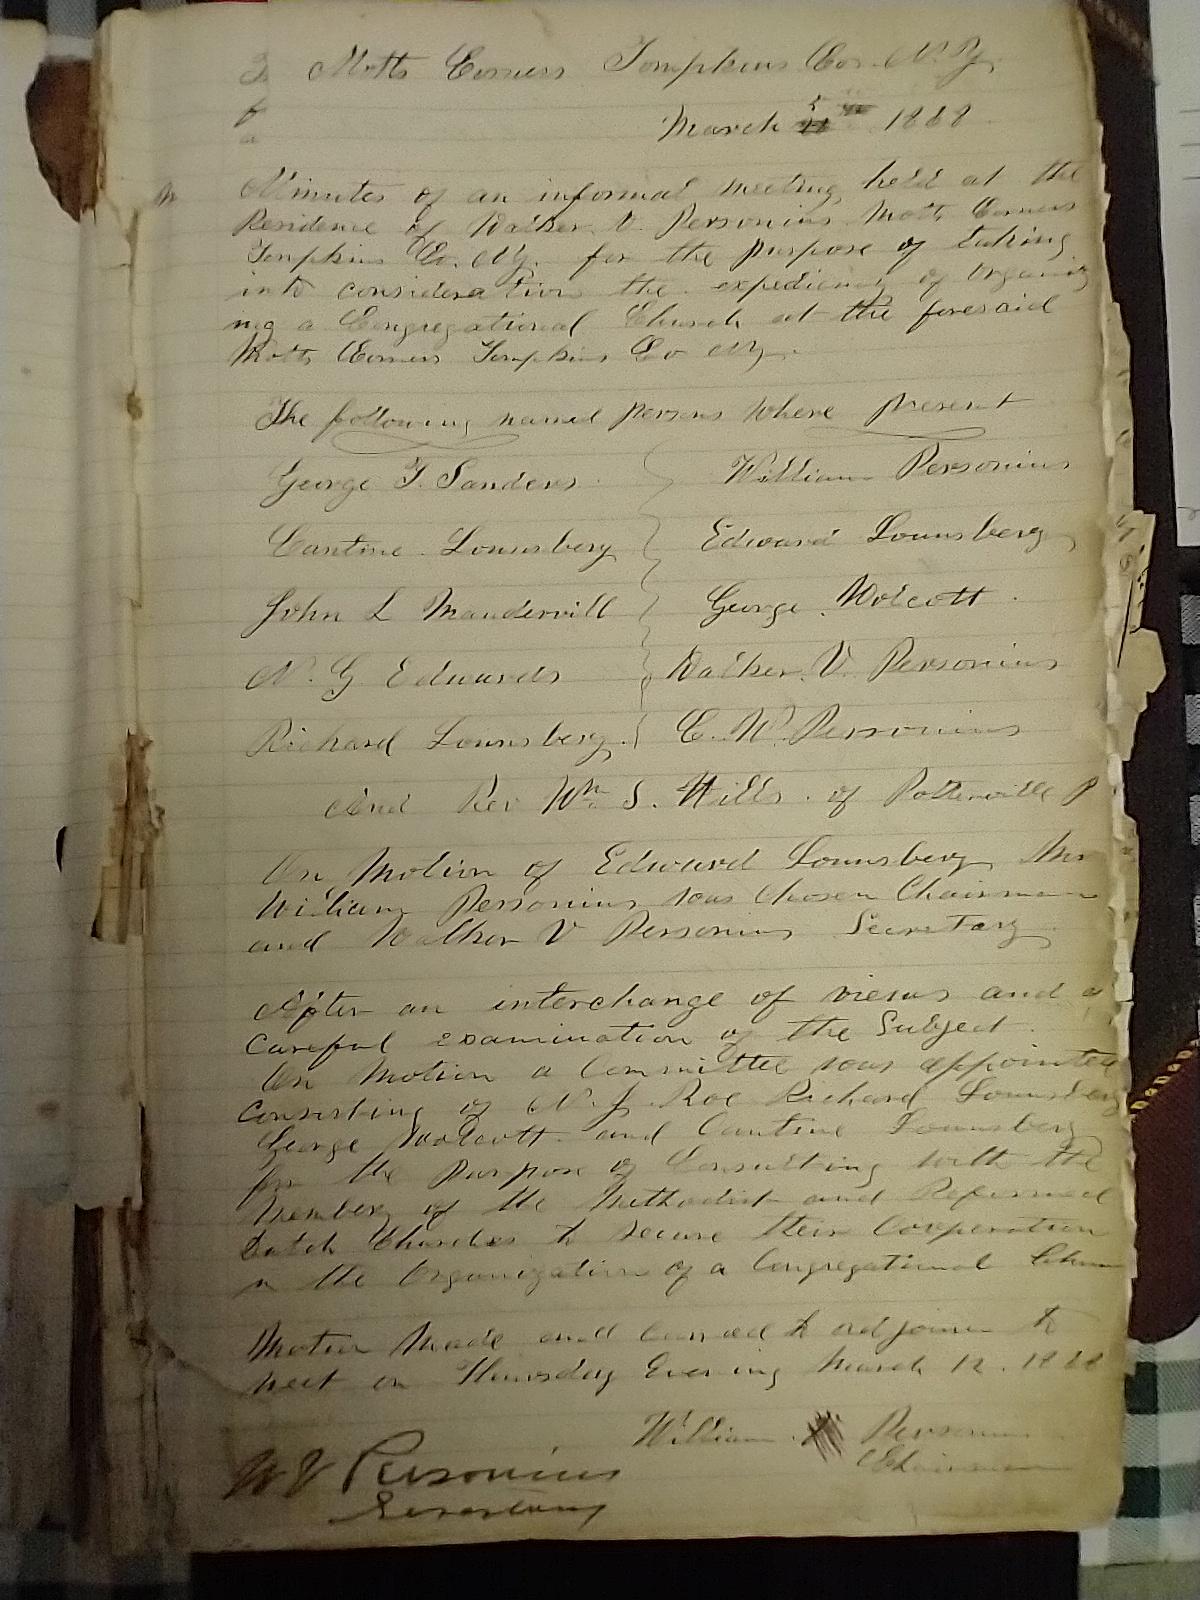 Motts Corners Tompkins Co. N. Y.
March 5 1868
Minutes of an informal meeting held at the
Residence of Walker V. Personius Motts Corners
Tompkins Co. N.Y. for the purpose of taking
into consideration the expediency of Organiz
ing a Congregational Church at the foresaid
Motts Corners Tompkins Co NY.
The following named persons Where present
George T. Sanders William Personius
Cantine Lounsbery Edward Lounsbery
John L Mandervill George Wolcott
N. G Edwards Walker V. Personius
Richard Lounsbery C. W. Personius
And Rev Wm S. Hills of Potterville P
On Motion of Edward Lounsbery Mr
William Personius was Chosen Chairman
and Walker V Personius Secretary
After an interchange of views and a
careful examination of the Subject
On Motion a Committee was appointed
Consisting of N. J. Roe Richard Lounsbery
George Wolcott and Cantine Lounsbery
for the Purpose of Consulting with the
Members of the Methodist and Reformed
Dutch Churches to secure their Cooperation
in the Organization of a Congregational
Motion Made and Carried to adjourn to
meet on Thursday Evening March 12. 1868
William Personius
Chairman
W V Personius
Secretary